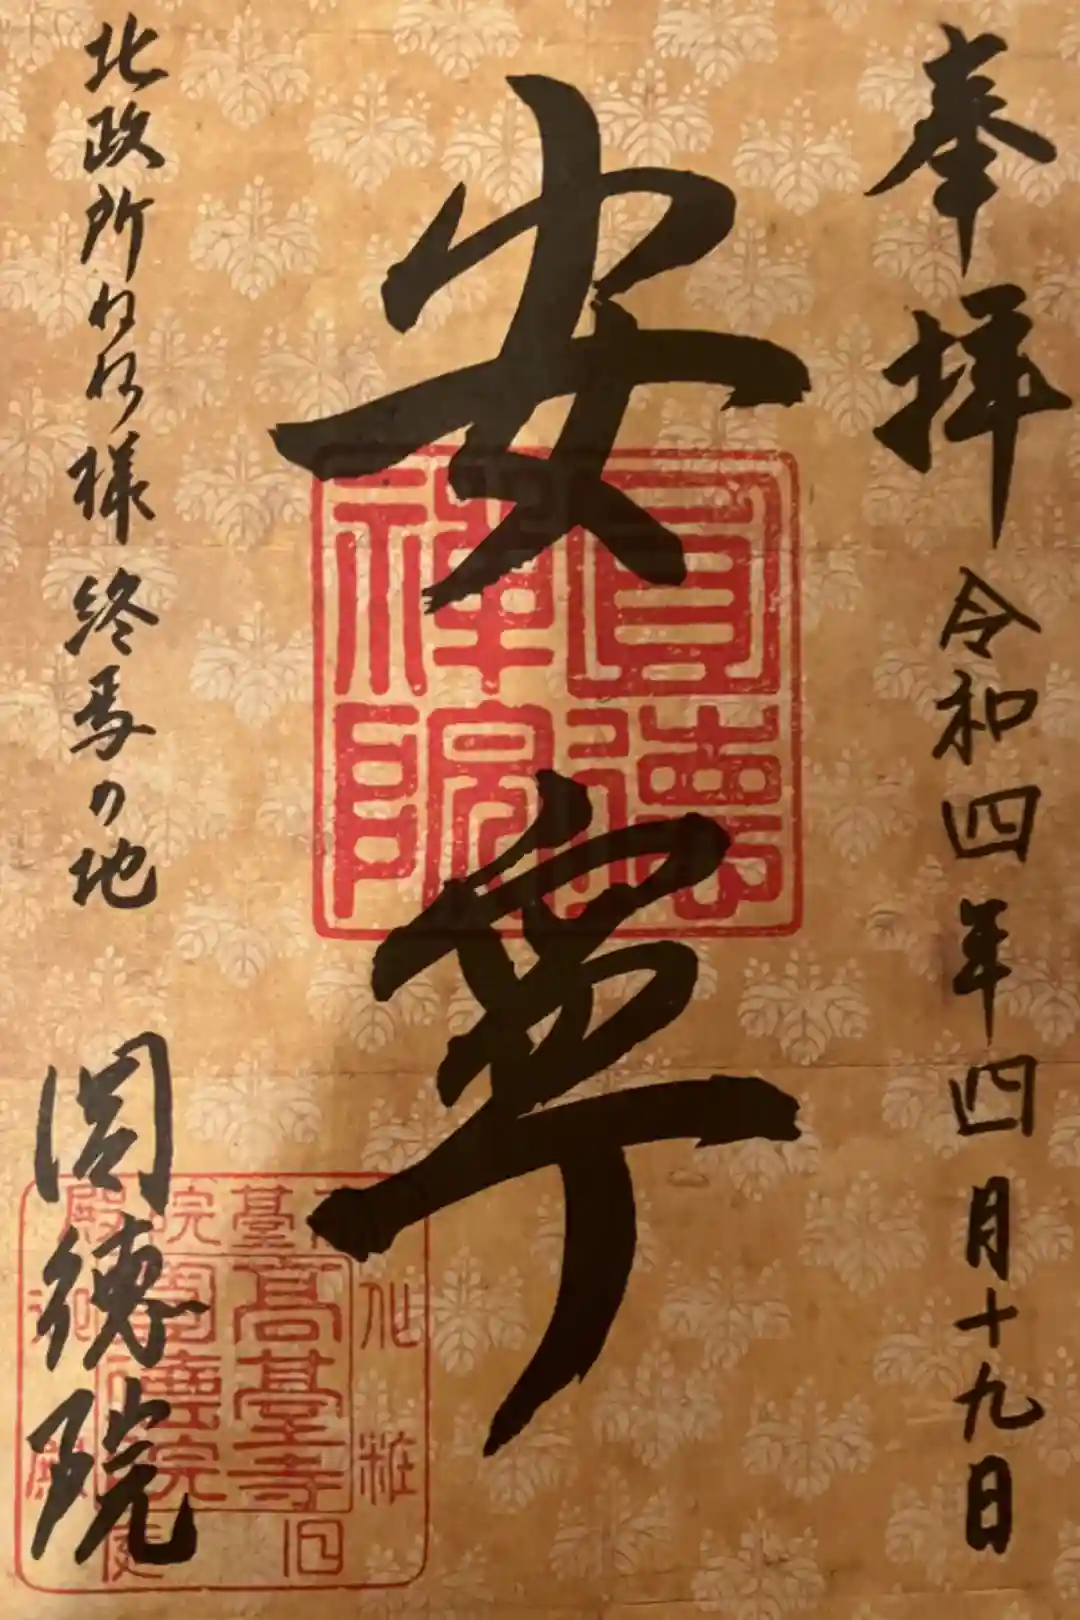 奉拝 令和四年四月十九日
安寧
北政所ねね様 終焉の地
圓德院
圓德
禅院
高臺寺
圓德院